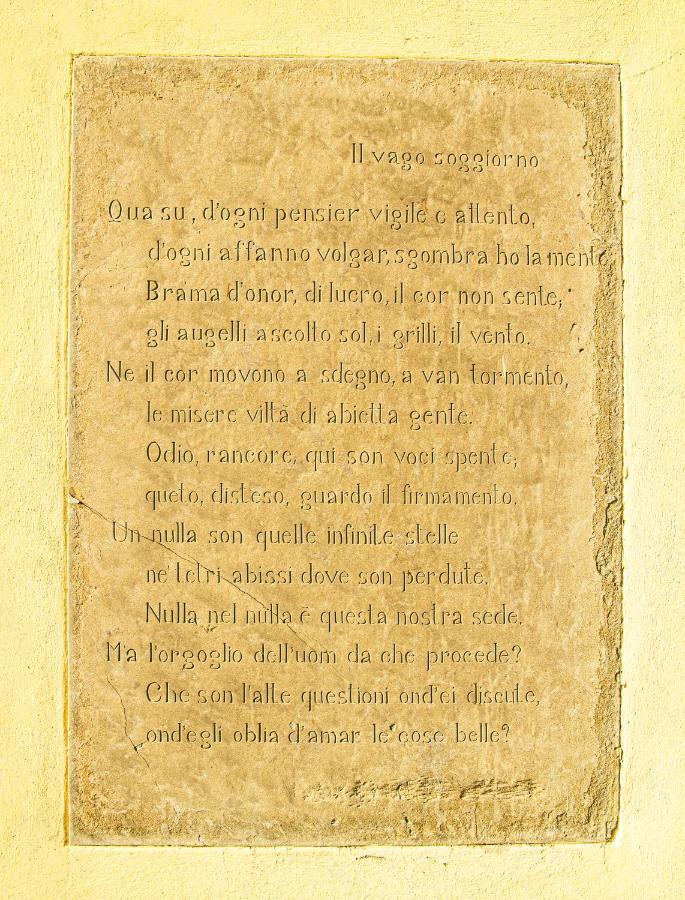 Il vago soggiorno
Qua su, d'ogni pensier vigile e attento,
d'ogni affanno volgar, sgombra ho la mente
Brama d'onor, di lucro, il cor non sente;
gli augelli ascolto sol, i grilli, il vento.
Ne il cor movono a sdegno, a van tormento,
le misere viltà di abietta gente.
Odio, rancore, qui son voci spente;
queto, disteso, guardo il firmamento.
Un nulla son quelle infinite stelle
ne' tetri abissi dove son perdute.
Nulla nel nulla è questa nostra sede.
Ma l'orgoglio dell'uom da che procede?
Che son l'alte questioni ond'ei discute,
ond'egli oblia d'amar le cose belle?